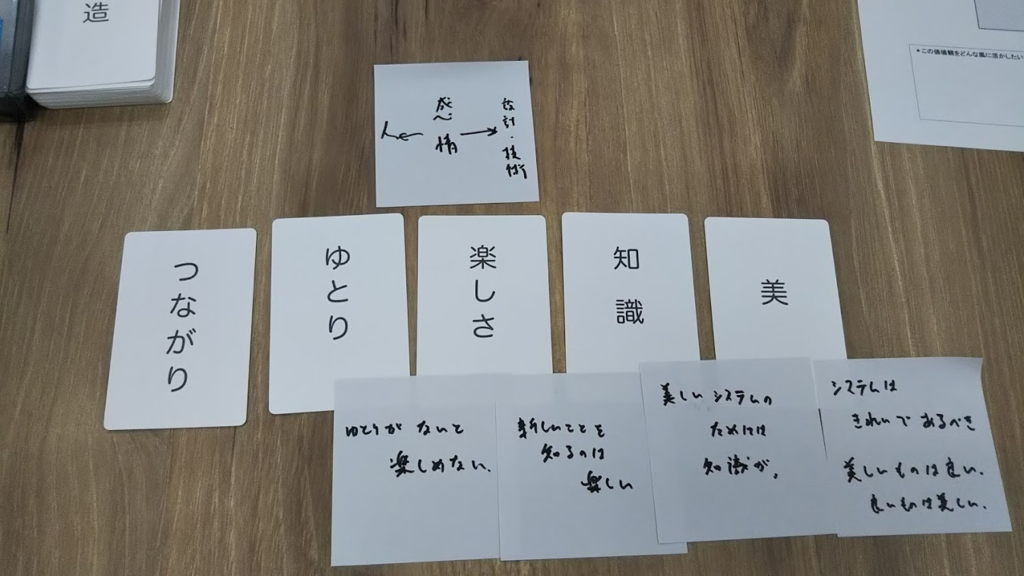 造
•この価値観をどんな風に活かしたい
感情
人
設計・技術
つながり
ゆとり
楽しさ
知識
美
ゆとりがないと
楽しめない.
新しいことを
知るのは
楽しい
美しいシステムの
ためには
知識が,
システムは
きれいであるべき
美しいものは良い.
良いものは美しい.